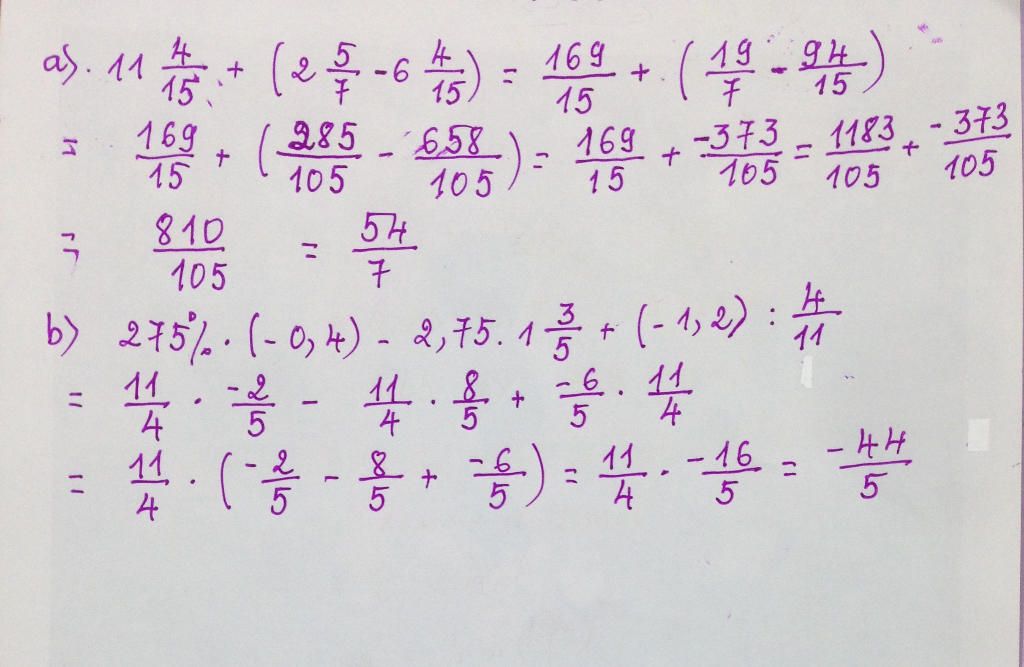 a). 11 4/15 + (2 5/7 - 6 4/15) = 169/15 + (19/7 - 94/15)
= 169/15 + (285/105 - 658/105) = 169/15 + -373/105 = 1183/105 + -373/105
= 810/105 = 54/7
b) 275% . (-0,4) - 2,75 . 1 3/5 + (-1,2) : 4/11
= 11/4 . -2/5 - 11/4 . 8/5 + -6/5 . 11/4
= 11/4 . (-2/5 - 8/5 + -6/5) = 11/4 . -16/5 = -44/5